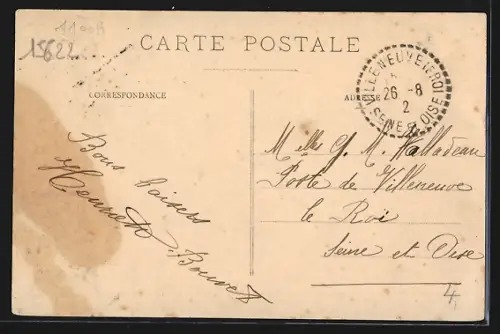 1100A
15622
CARTE POSTALE
CORRESPONDANCE
ADRESSE
VILLENEUVE-LE-ROI
26 -8
2
SEINE ET OISE
Bons baisers
Bouvet
Melles G. M. Malladeau
Poste de Villeneuve
le Roi
Seine et Oise
4